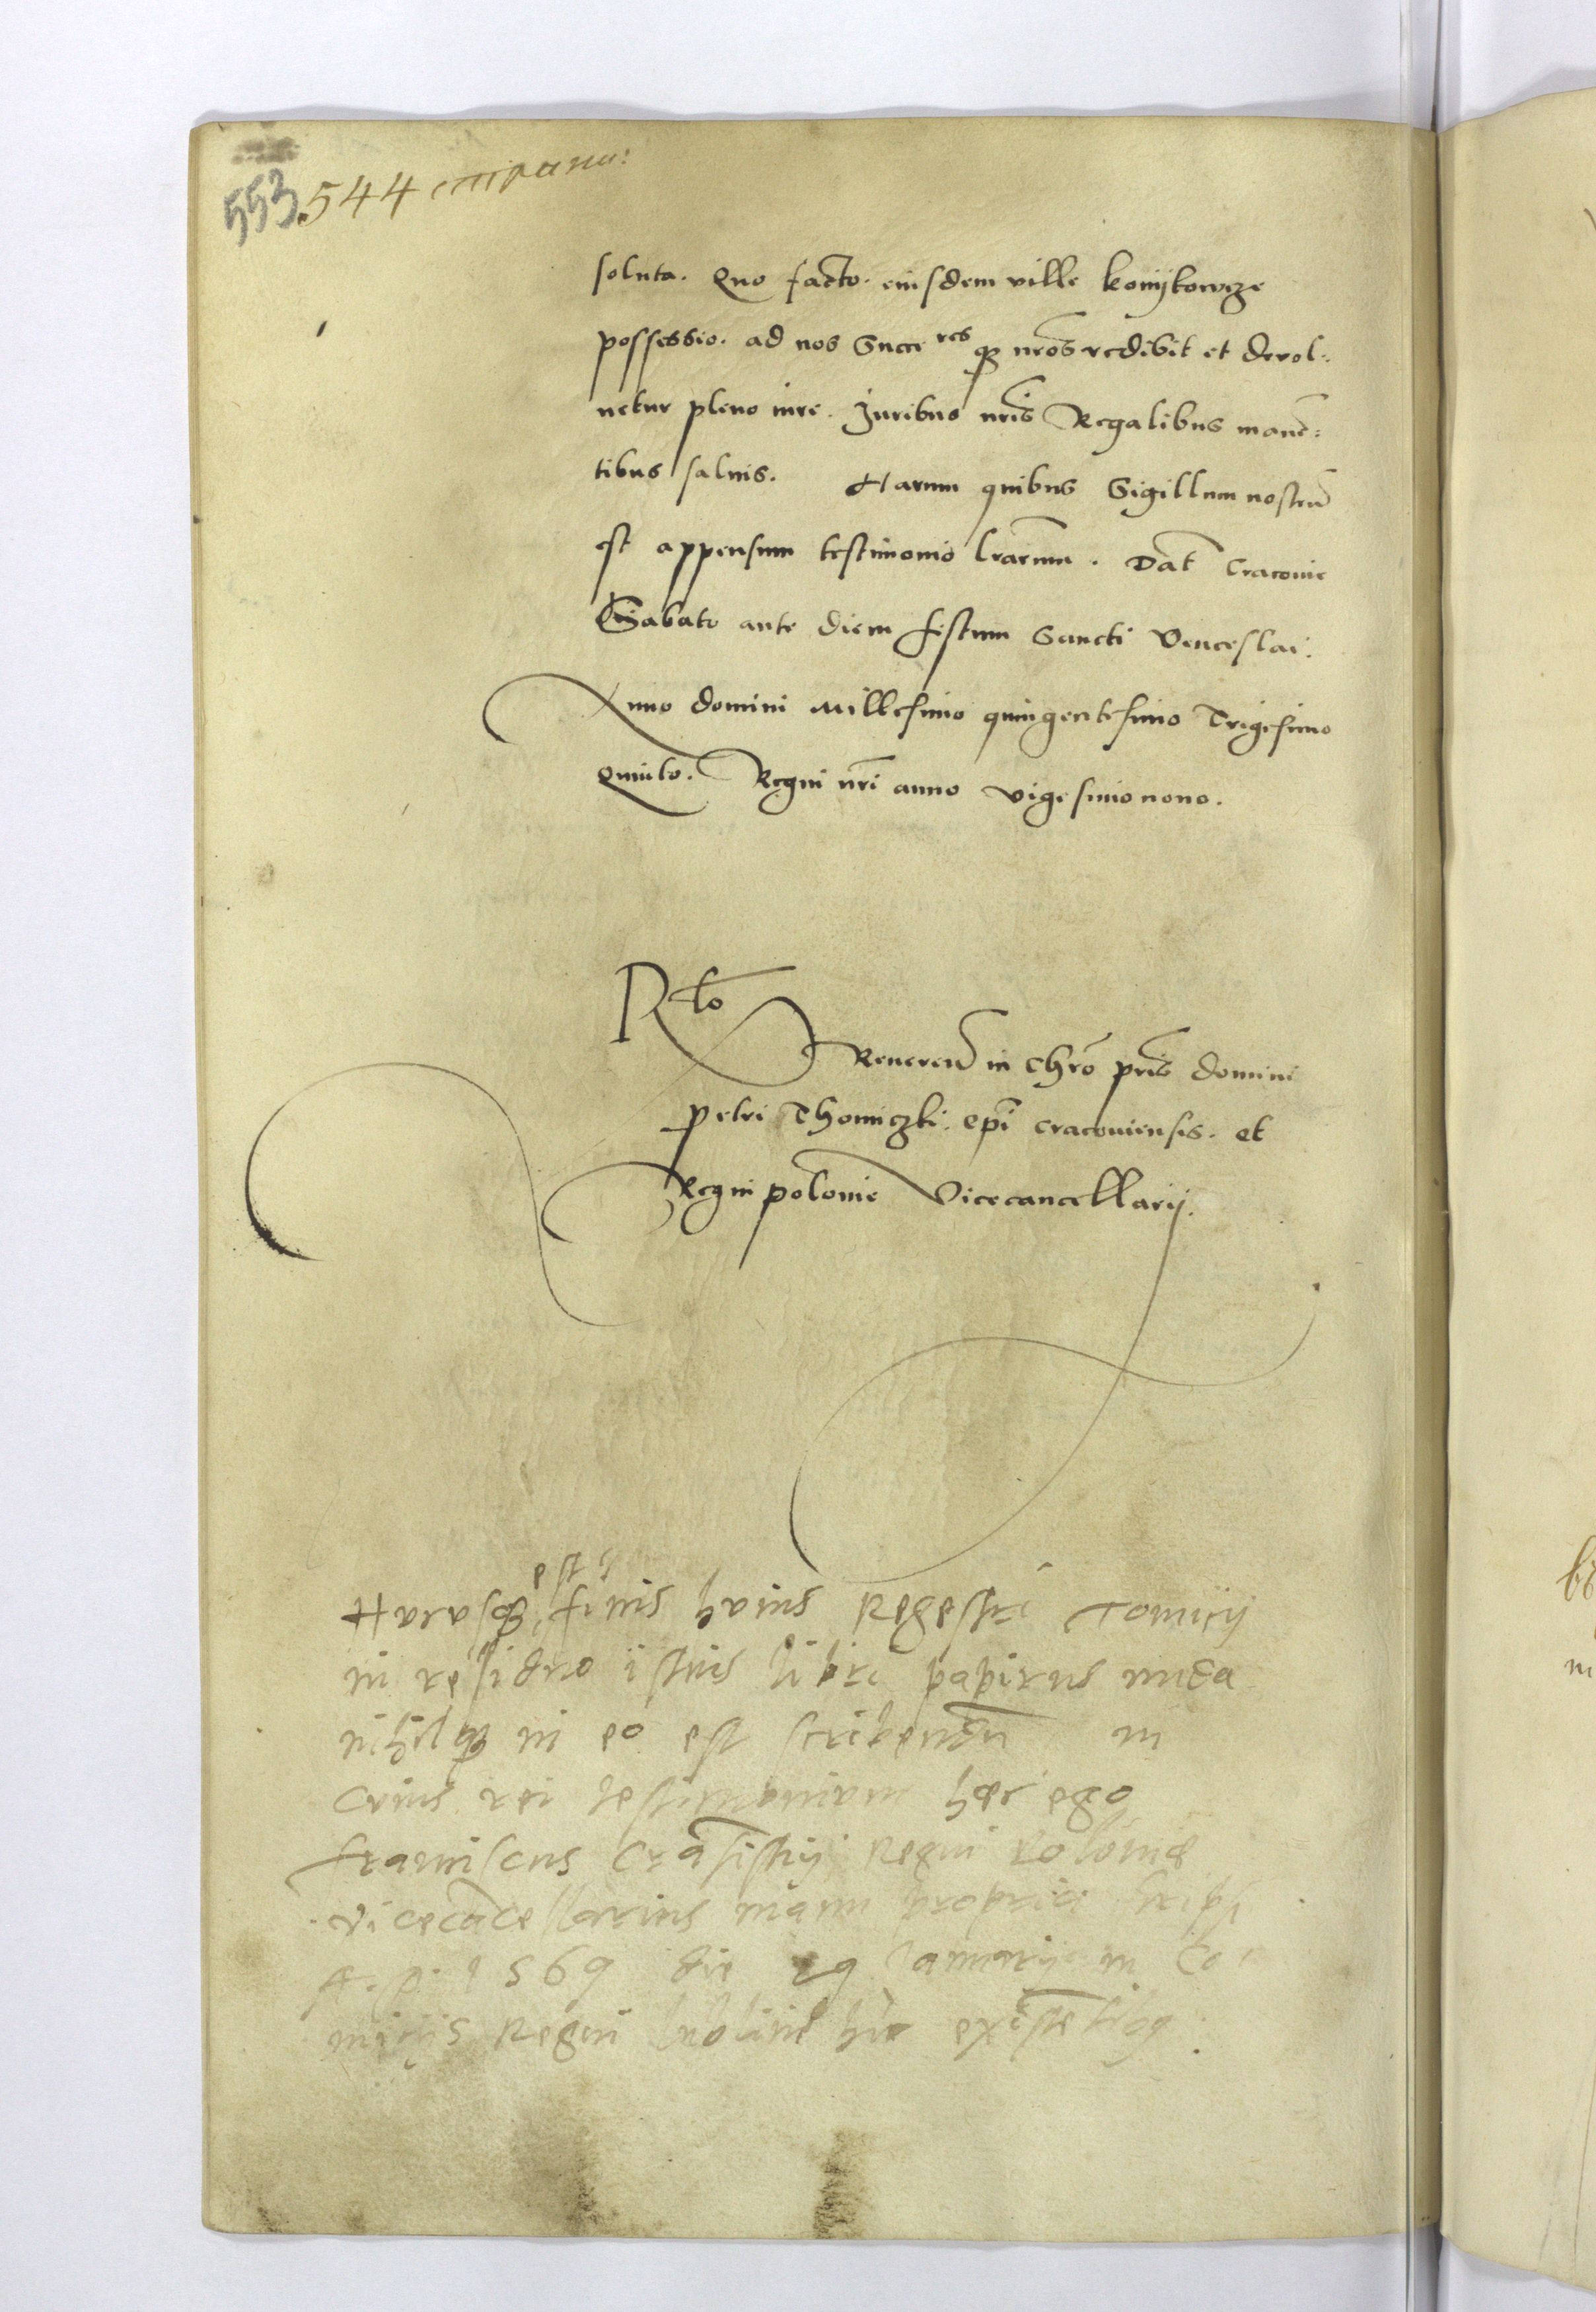 553 544
soluta. Quo facto. eiusdem ville konijkowcze
possessio. ad nos Succe res qȝ nros redibit et devol-
uetur pleno iure. Juribus nris Regalibus manē-
tibus saluis. Harum quibus Sigillum nostrū
est appensum testimonio lrarum. Dat Cracovie
Sabato ante diem festum Sancti Venceslai.
Anno domini Millesimo quingentesimo Trigesimo
Quinto. Regni nri anno vigesimonono.
Rlo
Reuerend in Chro pris domini
Petri Thomiczki. epi Cracouiensis. et
Regni polonie Vicecancellarij.
Hucusqȝ est finis huius Regestri Tomicij
in residuo istius libri papirus nuda
nihilqȝ in eo est scribendū in
cuius rei testimonium hęc ego
franciscus Crasistij Regni Polonię
vicecācellarius manu propria scripsi
A. D. 1569 die 29 Januarij in Co
mitijs Regni lublini hic